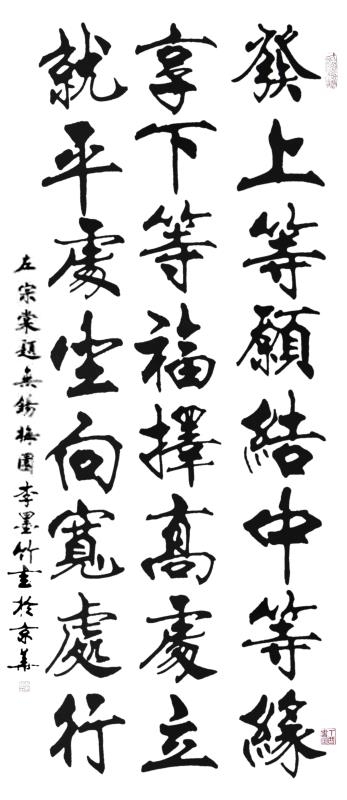 發上等願結中等緣
享下等福擇高處立
就平處坐向寬處行
左宗棠題無錫梅園李墨竹書於京華